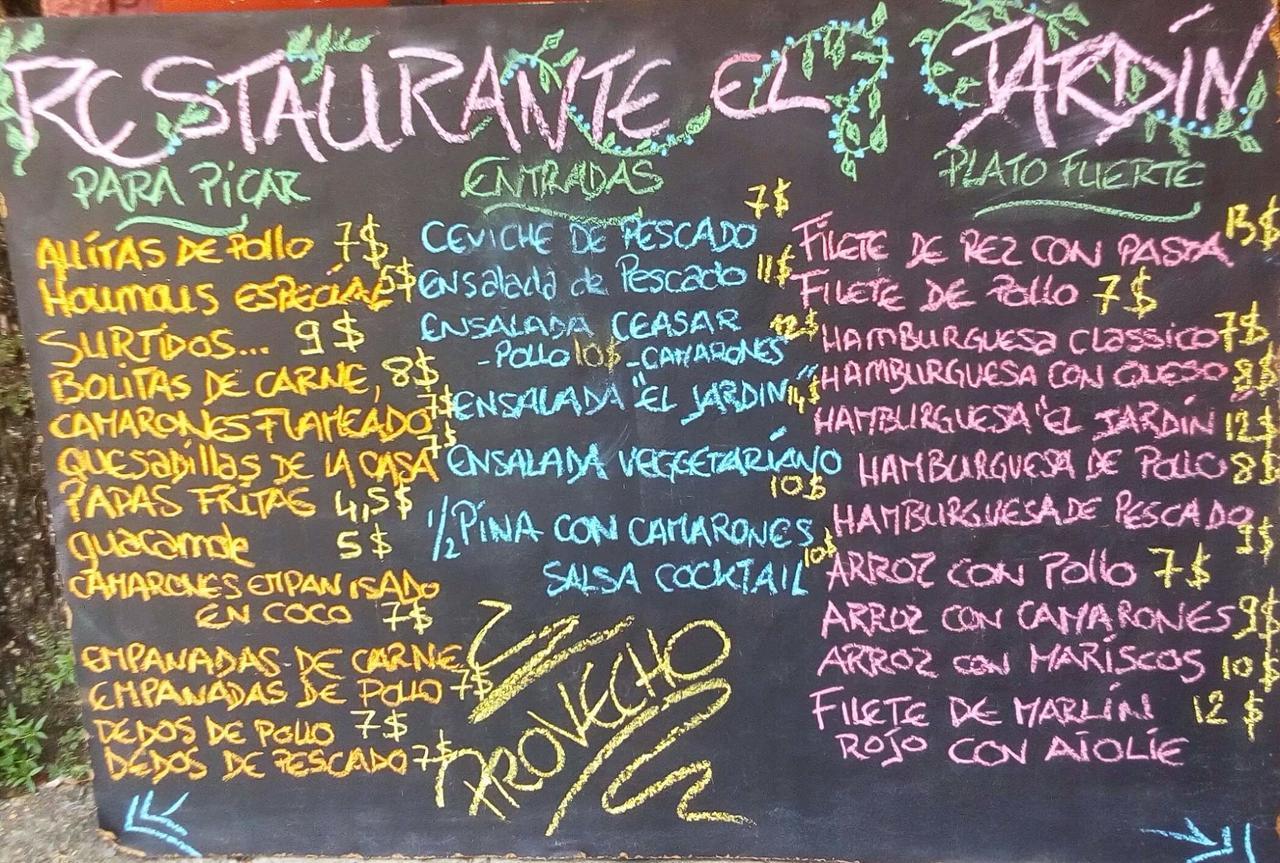 RESTAURANTE EL JARDÍN
PARA PICAR
ALLITAS DE POLLO 7$
HOUMOUS ESPECIAL 5$
SURTIDOS... 9$
BOLITAS DE CARNE, 8$
CAMARONES FLAMEADO 7$
QUESADILLAS DE LA CASA 7$
PAPAS FRITAS 4,5$
guacamole 5$
CAMARONES EMPANISADO
EN COCO 7$
EMPANADAS DE CARNE
EMPANADAS DE POLLO 7$
DEDOS DE POLLO 7$
DEDOS DE PESCADO 7$
ENTRADAS
CEVICHE DE PESCADO 7$
ENSALADA de PESCADO 11$
ENSALADA CEASAR 12$
-POLLO 10$ -CAMARONES
ENSALADA "EL JARDIN" 14$
ENSALADA VEGGETARIANO
10$
1/2 PINA CON CAMARONES
SALSA COCKTAIL 10$
PROVECHO
PLATO FUERTE
FILETE DE REZ CON PASTA 13$
FILETE DE POLLO 7$
HAMBURGUESA CLASSICO 7$
HAMBURGUESA CON QUESO 8$
HAMBURGUESA "EL JARDÍN 12$
HAMBURGUESA DE POLLO 8$
HAMBURGUESA DE PESCADO
9$
ARROZ CON POLLO 7$
ARROZ CON CAMARONES 9$
ARROZ CON MARISCOS 10$
FILETE DE MARLIN 12$
ROJO CON AIOLIE